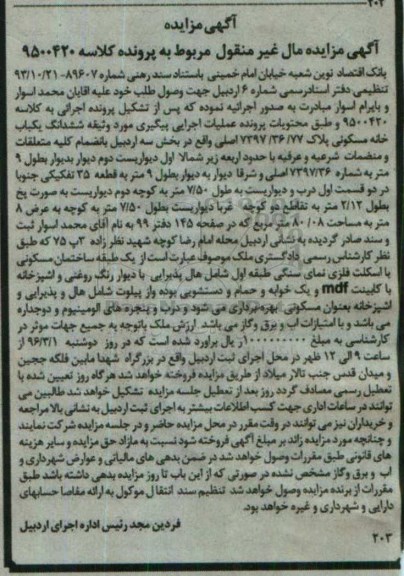 ۲۰۲
آگهی مزایده
آگهی مزایده مال غیر منقول مربوط به پرونده کلاسه ۹۵۰۰۴۲۰
بانک اقتصاد نوین شعبه خیابان امام خمینی باستناد سند رهنی شماره ۸۹۶۰۷-۹۳/۱۰/۲۱
تنظیمی دفتر اسنادرسمی شماره ۶ اردبیل جهت وصول طلب خود علیه اقایان محمد اسوار
و بایرام اسوار مبادرت به صدور اجرائیه نموده که پس از تشکیل پرونده اجرائی به کلاسه
۹۵۰۰۴۲۰ و طبق محتویات پرونده عملیات اجرایی پیگیری مورد وثیقه ششدانگ یکباب
خانه مسکونی پلاک ۷۳۹۷/۳۶/۷۷ اصلی واقع در بخش سه اردبیل بانضمام کلیه متعلقات
و منضمات شرعیه و عرفیه با حدود اربعه زیر شمالا اول دیواریست دوم دیوار بدیوار بطول ۹
متر به شماره ۷۳۹۷/۳۶ اصلی و شرقا دیوار به دیوار بطول ۹ متر به قطعه ۳۵ تفکیکی جنوبا
در دو قسمت اول درب و دیواریست به طول ۷/۵۰ متر به کوچه دوم دیواریست به صورت پخ
بطول ۲/۱۲ متر به تقاطع دو کوچه غربا دیواریست بطول ۷/۵۰ متر به کوچه به عرض ۸
متر به مساحت ۸۰/۰۸ متر مربع که در صفحه ۱۴۵ دفتر ۹۹ به نام آقای محمد اسوار ثبت
و سند صادر گردیده به نشانی اردبیل محله امام رضا کوچه شهید نظر زاده ۳پ ۷۵ که طبق
نظر کارشناس رسمی دادگستری ملک موصوف عبارت است از یک طبقه ساختمان مسکونی
با اسکلت فلزی نمای سنگی طبقه اول شامل هال پذیرایی با دیوار رنگ روغنی و اشپزخانه
با کابینت mdf و یک خوابه و حمام و دستشویی بوده واز پیلوت شامل هال و پذیرایی و
اشپزخانه بعنوان مسکونی بهره برداری می شود و درب و پنجره های الومینیوم و دوجداره
می باشد و با امتیازات اب و برق وگاز می باشد ارزش ملک باتوجه به جمیع جهات موثر در
کارشناسی به مبلغ ۱۰۰۰۰۰۰۰۰۰ ریال براورد شده است که در روز دوشنبه ۹۶/۳/۱ از
ساعت ۹ الی ۱۲ ظهر در محل اجرای ثبت اردبیل واقع در بزرگراه شهدا مابین فلکه ججین
و میدان قدس جنب تالار میلاد از طریق مزایده فروخته خواهد شد هرگاه روز تعیین شده با
تعطیل رسمی مصادف گردد روز بعد از تعطیل جلسه مزایده تشکیل خواهد شد طالبین می
توانند در ساعات اداری جهت کسب اطلاعات بیشتر به اجرای ثبت اردبیل به نشانی بالا مراجعه
و خریداران نیز می توانند در وقت مقرر در محل مزایده حاضر و در جلسه مزایده شرکت نمایند
و چنانچه مورد مزایده زائد بر مبلغ آگهی فروخته شود نسبت به مازاد حق مزایده و سایر هزینه
های قانونی طبق مقررات وصول خواهد شد در ضمن بدهی های مالیاتی و عوارض شهرداری و
اب و برق وگاز مشخص نشده در صورتی که از این باب تا روز مزایده بدهی داشته باشد طبق
مقررات از برنده مزایده وصول خواهد شد تنظیم سند انتقال موکول به ارائه مفاصا حسابهای
دارایی و شهرداری و غیره خواهد بود.
فردین مجد رئیس اداره اجرای اردبیل
۲۰۳